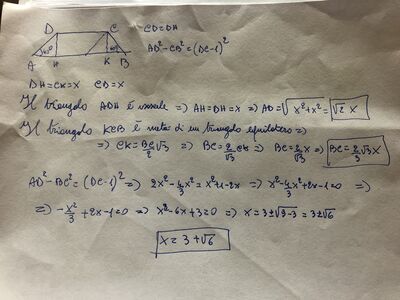 D C
CD=DH
AD²-CB²=(DC-1)²
45° 60°
A H K B
DH=CK=X CD=X
Il triangolo ADH è isoscele => AH=DH=X => AD=√(X²+X²)=√2 X
Il triangolo KCB è metà di un triangolo equilatero =>
=> CK=BC/2 √3 => BC=2/√3 CK => BC=2/√3 X => BC=2/3 √3 X
AD²-BC²=(DC-1)² => 2X²-4/3 X²=X²+1-2X => X²-4/3 X²+2X-1=0 =>
=> -X²/3+2X-1=0 => X²-6X+3=0 => X=3±√(9-3)=3±√6
X=3+√6